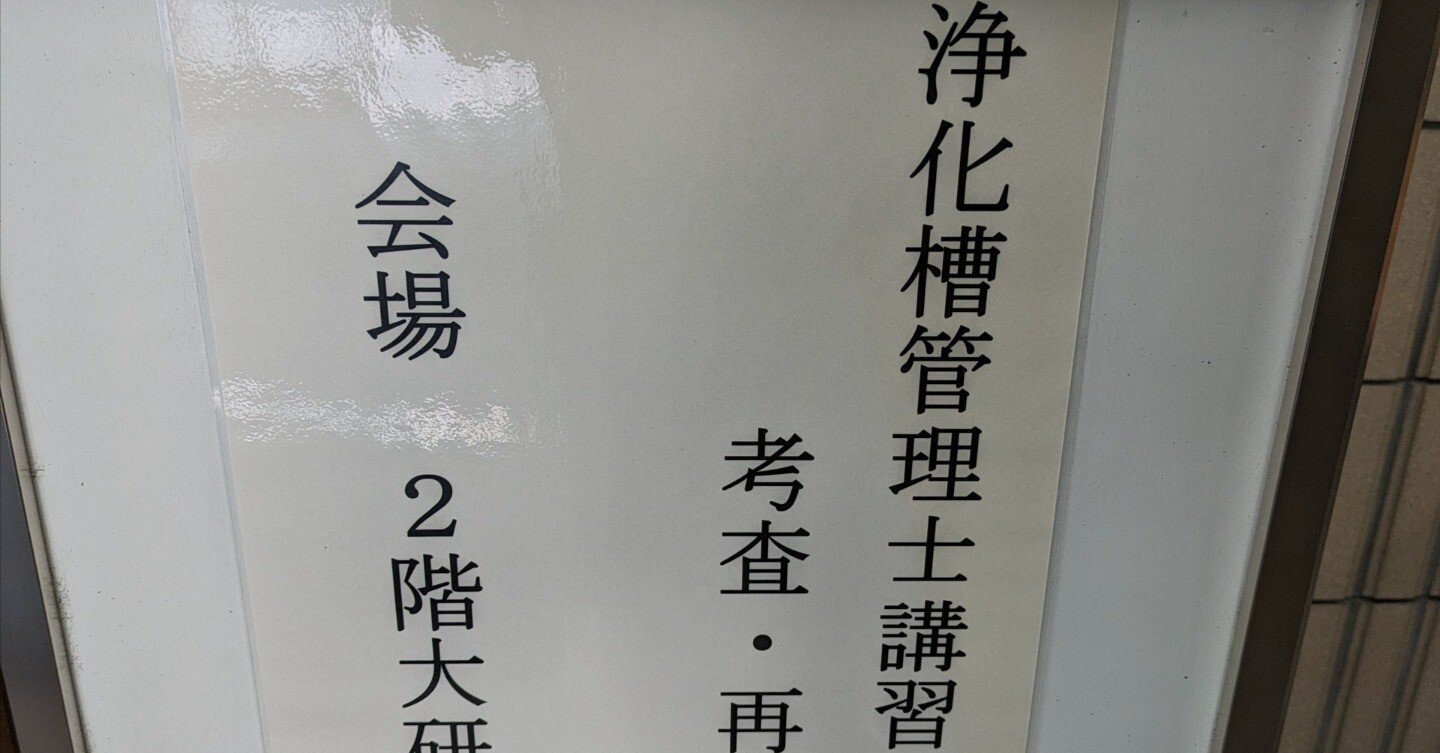 浄化槽管理士講習
考査・再
会場 2階大研